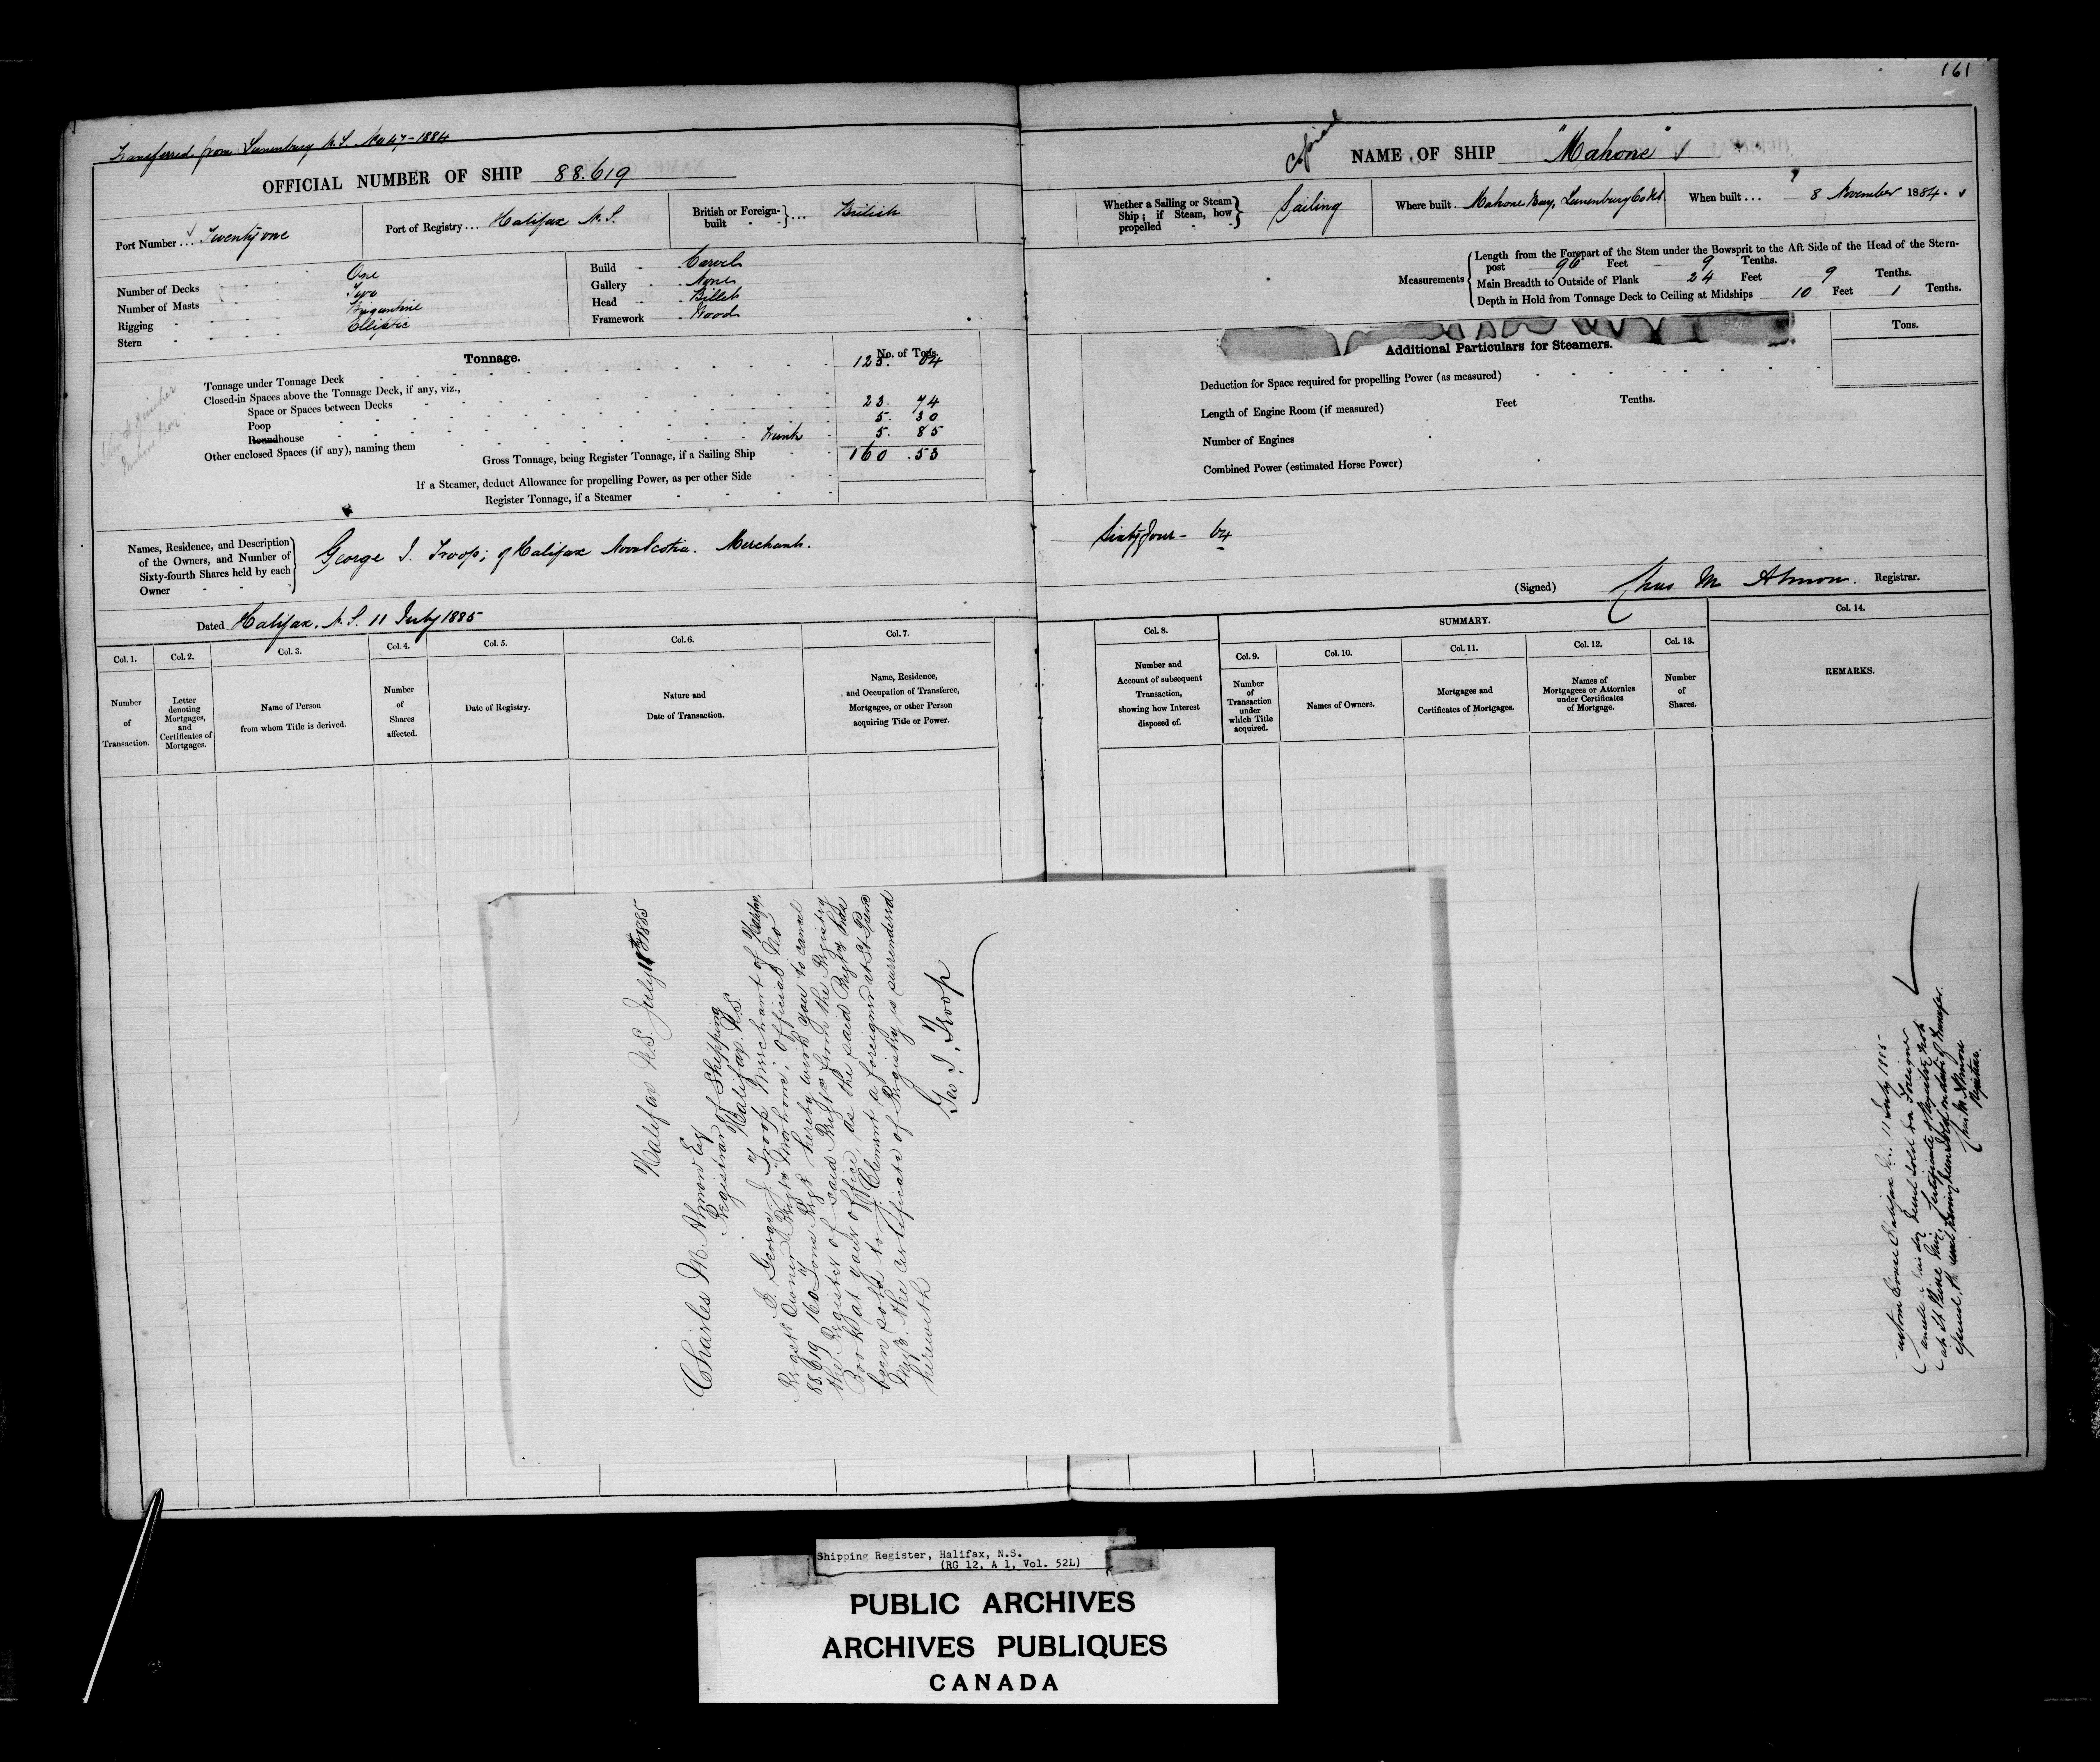 161
Transferred from Lunenburg N.S. No 47-1884
OFFICIAL NUMBER OF SHIP 88.619
Copied
NAME OF SHIP "Mahone"
Port Number ... Twenty one
Port of Registry ... Halifax N.S.
British or Foreign-built ... British
Whether a Sailing or Steam Ship; if Steam, how propelled - - Sailing
Where built . Mahone Bay, Lunenburg Co NS.
When built ... 8 November 1884.
Number of Decks One
Number of Masts Two
Rigging Brigantine
Stern Elliptic
Build Carvel
Gallery None
Head Billet
Framework Wood
Measurements
Length from the Forepart of the Stem under the Bowsprit to the Aft Side of the Head of the Stern-
post 96 Feet 9 Tenths.
Main Breadth to Outside of Plank 24 Feet 9 Tenths.
Depth in Hold from Tonnage Deck to Ceiling at Midships 10 Feet 1 Tenths.
Tonnage.
No. of Tons.
Tonnage under Tonnage Deck 125. 64
Closed-in Spaces above the Tonnage Deck, if any, viz.,
Space or Spaces between Decks
Poop 23. 74
Roundhouse 5. 30
Other enclosed Spaces (if any), naming them Trunk 5. 85
Gross Tonnage, being Register Tonnage, if a Sailing Ship 160 .53
If a Steamer, deduct Allowance for propelling Power, as per other Side
Register Tonnage, if a Steamer
Additional Particulars for Steamers.
Tons.
Deduction for Space required for propelling Power (as measured)
Length of Engine Room (if measured) Feet Tenths.
Number of Engines
Combined Power (estimated Horse Power)
Names, Residence, and Description
of the Owners, and Number of
Sixty-fourth Shares held by each
Owner
George J. Troop; of Halifax Nova Scotia. Merchant.
Sixty four - 64
(Signed) Chas M Almon. Registrar.
Dated Halifax, N.S. 11 July 1885
SUMMARY.
Col. 1. Number of Transaction.
Col. 2. Letter denoting Mortgages, and Certificates of Mortgages.
Col. 3. Name of Person from whom Title is derived.
Col. 4. Number of Shares affected.
Col. 5. Date of Registry.
Col. 6. Nature and Date of Transaction.
Col. 7. Name, Residence, and Occupation of Transferee, Mortgagee, or other Person acquiring Title or Power.
Col. 8. Number and Account of subsequent Transaction, showing how Interest disposed of.
Col. 9. Number of Transaction under which Title acquired.
Col. 10. Names of Owners.
Col. 11. Mortgages and Certificates of Mortgages.
Col. 12. Names of Mortgagees or Attornies under Certificates of Mortgage.
Col. 13. Number of Shares.
Col. 14. REMARKS.
Halifax N.S. July 11th 1885
Charles M. Almon Esq
Registrar of Shipping
Halifax N.S.
I George J. Troop Merchant of Halifax,
Regst Owner Brigt "Mahone", Official No
88.619 160 Tons Regr hereby wish you to cancel
the Register of said Brigt from the Registry
Book at your office, as the said Brigt has
been sold to J. Clement a foreigner at St Pierre
Miq. The Certificate of Registry is surrendered
herewith
Geo. J. Troop
Custom House Halifax N.S. 11 July 1885-
Vessel sold to a Foreigner
at St Pierre Miq. Certificate of Registry
date of Transfer.
Chas. M. Almon
Registrar.
Shipping Register, Halifax, N.S.
(RG 12, A 1, Vol. 52L)
PUBLIC ARCHIVES
ARCHIVES PUBLIQUES
CANADA